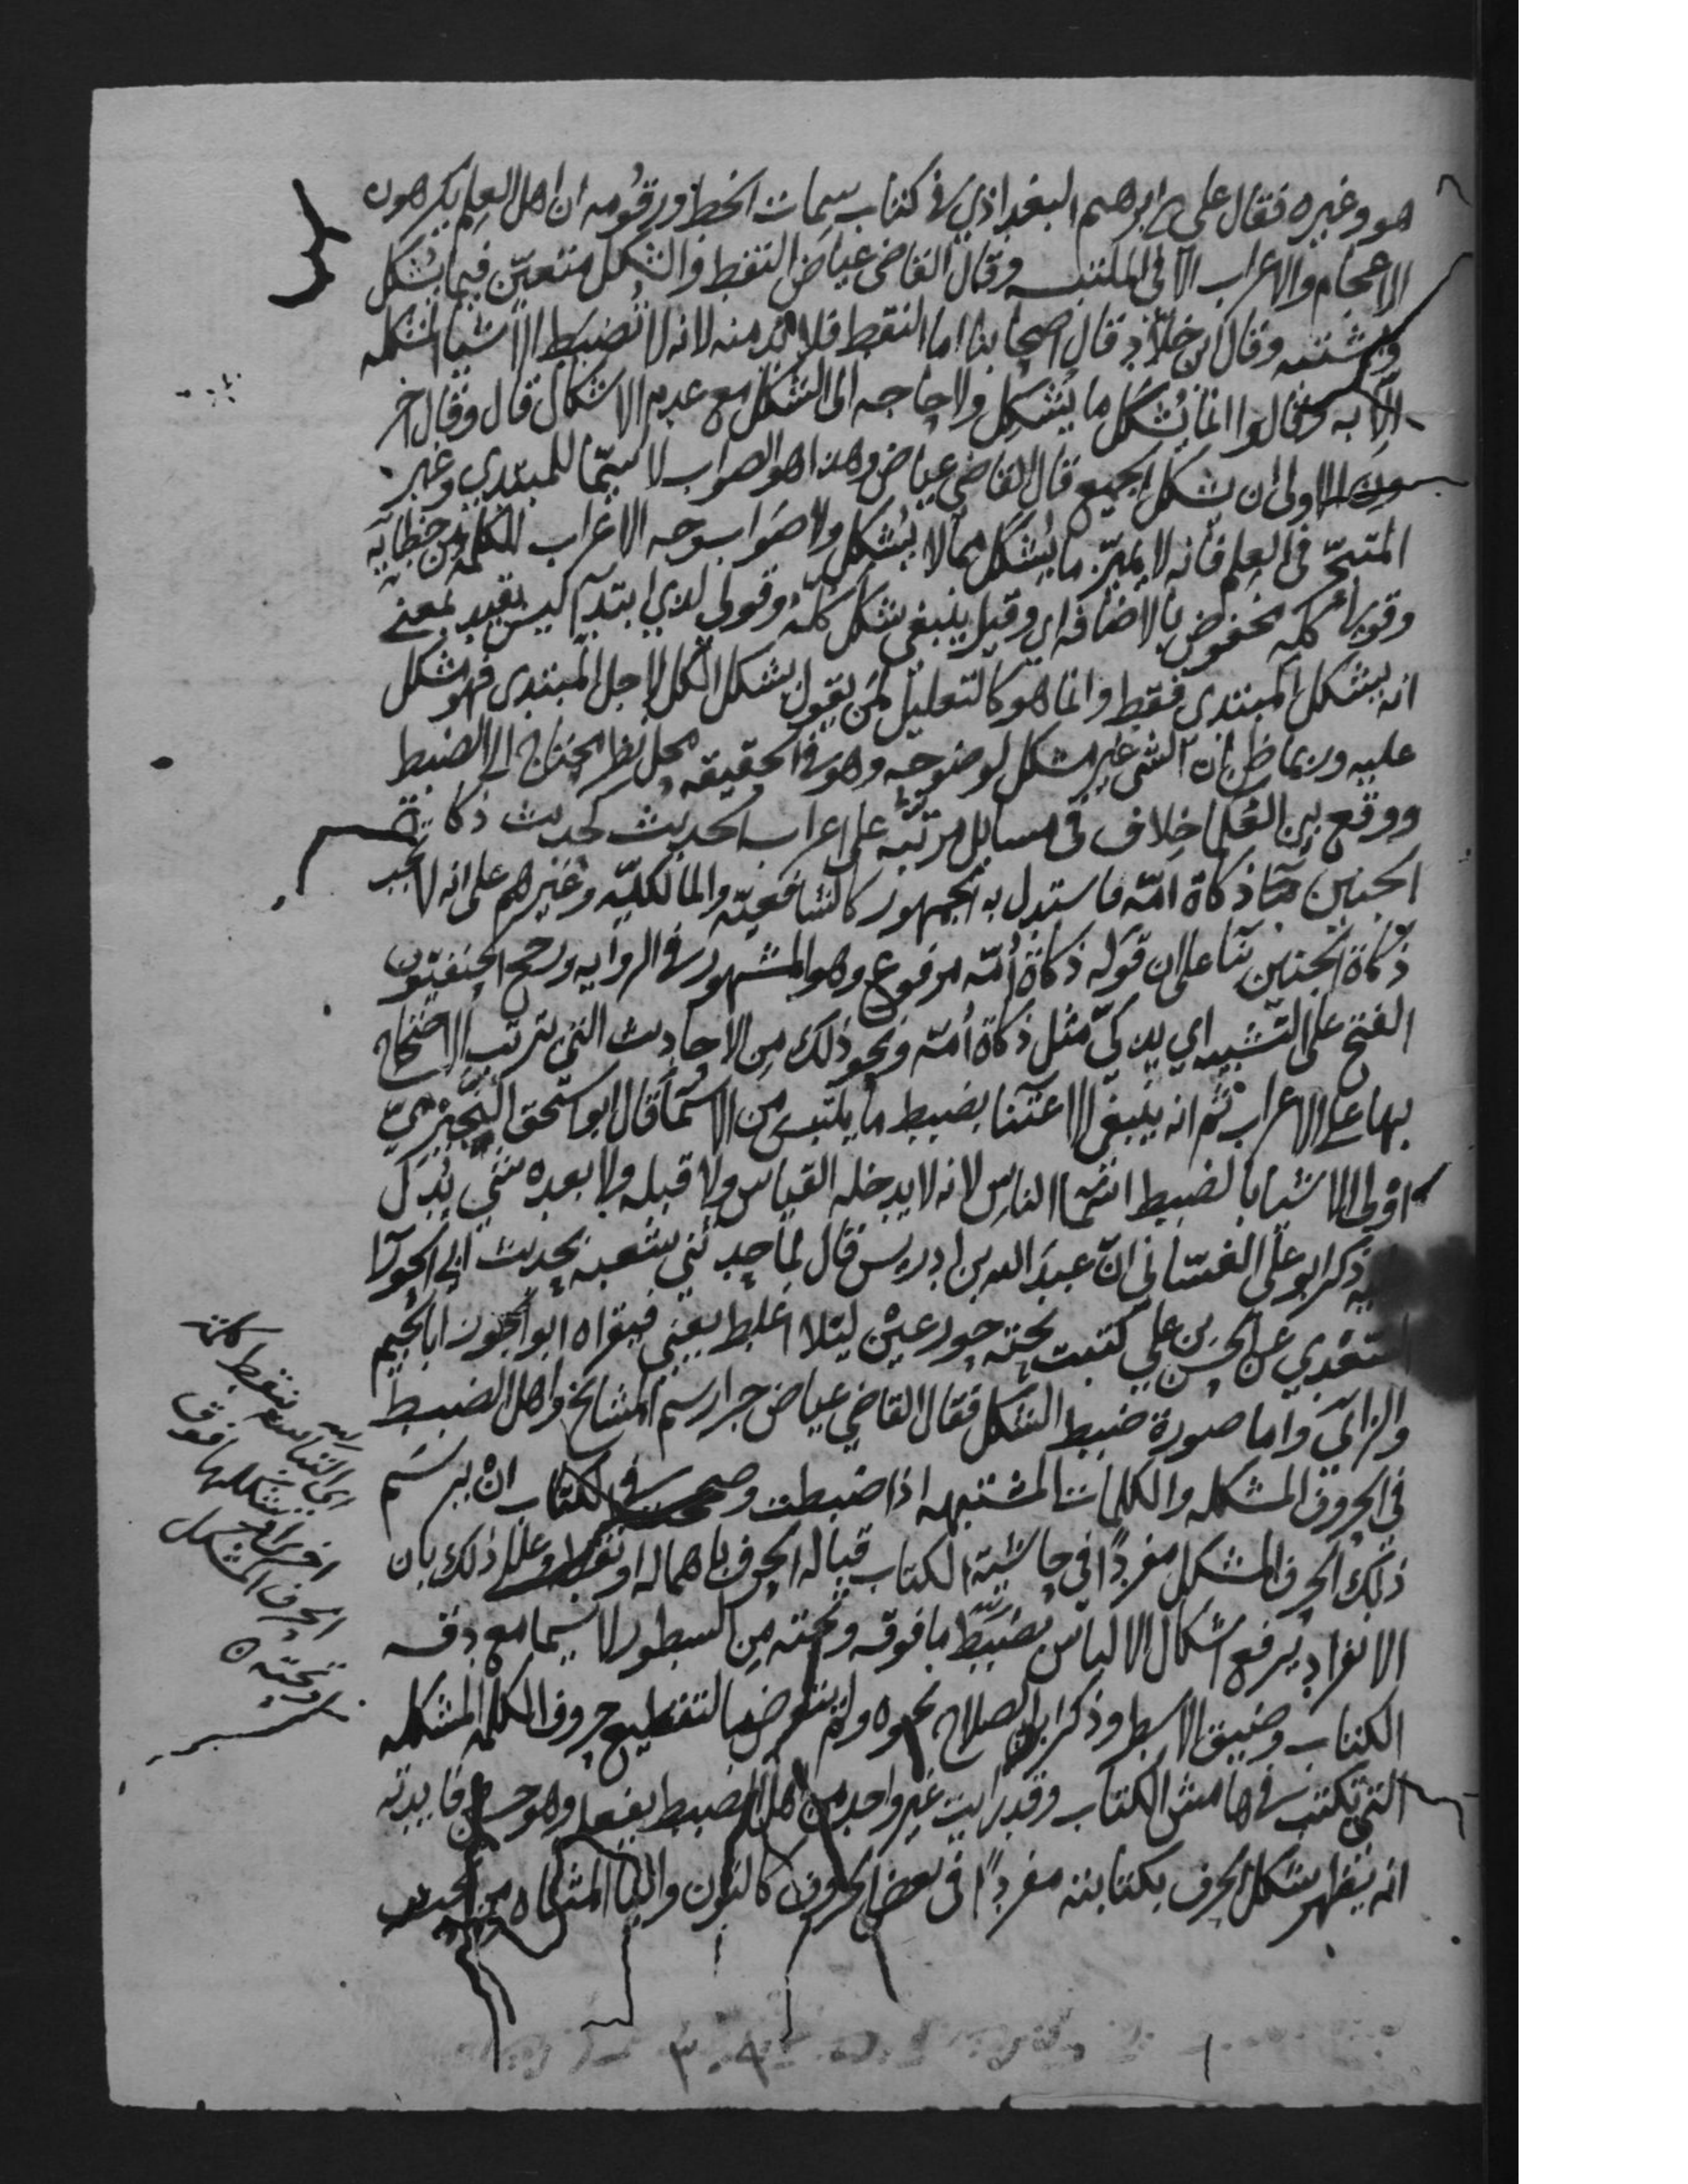 هو وغيره فقال علي بن ابرهيم البغداذي في كتاب سمات الخط ورقومه ان اهل العلم يكرهون
الاعجام والاعراب الا في الملتبس وقال القاضي عياض النقط والشكل متعين فيما يشكل
ويشتبه وقال ابن خلاد قال اصحابنا اما النقط فلا بد منه لانه لا تضبط الاشيا المشكله
الا به وقالوا انما يشكل ما يشكل ولا حاجه الى الشكل مع عدم الاشكال قال وقال اخر
ون الاولى ان يشكل الجميع قال القاضي عياض وهذا هو الصواب لا سيما للمبتدي وغير
المتبحر في العلم فانه لا يميز ما يشكل مما لا يشكل ولا صواب وجه الاعراب للكلمه من خطايه
وقولها كله مخفوض بالاضافه اي وقيل ينبغي شكل كله وقولي لذي ابتدآ ليس تقييد بمعنى
انه يشكل للمبتدي فقط وانما هو كالتعليل لمن يقول يشكل الكل لاجل المبتدي فهو مشكل
عليه وربما ظن ان الشي غير مشكل لوضوحه وهو في الحقيقه محل نظر محتاج الى الضبط
ووقع بين العلما خلاف في مسايل مرتبه على اعراب الحديث كحديث ذكاة
الجنين ذكاة امه فاستدل به الجمهور كالشافعيه والمالكيه وغيرهم على انه لا تجب
ذكاة الجنين بنا على ان قوله ذكاة امه مرفوع وهو المشهور في الروايه ورجح الحنفيون
الفتح على التشبيه اي يذكى مثل ذكاة امه ونحو ذلك من الاحاديث التي يترتب الاحتجاج
بها على الاعراب ثم انه ينبغي الاعتنا بضبط ما يلتبس من الاسما قال ابو اسحق النجيرمي
اولى الاشيا بالضبط اسما الناس لانه لا يدخله القياس ولا قبله ولا بعده شي يدل
عليه ذكر ابو علي الغساني ان عبد الله بن ادريس قال لما حدثني شعبه بحديث ابي الحورا
السعدي عن الحسن بن علي كتبت تحته حور عين ليلا اغلط يعني فيقراه ابو الجوزا بالجيم
والزاي واما صورة ضبط الشكل فقال القاضي عياض جرا رسم المشايخ واهل الضبط
في الحروف المشكله والكلمات المشتبهه اذا ضبطت وصححت في الكتاب ان يرسم
ذلك الحرف المشكل مفردا في حاشية الكتاب قباله الحرف باهماله او نقطه وعلل ذلك بان
الانفراد يرفع اشكال الالباس بضبط ما فوقه وتحته من السطور لا سيما مع دقه
الكتاب وضيق الاسطر وذكر ابن الصلاح نحوه ولم يتعرضا لتقطيع حروف الكلمه المشكله
التي تكتب في هامش الكتاب وقد رايت غير واحد من اهل الضبط يفعله وهو حسن وفايدته
انه يظهر شكل الحرف بكتابته مفردا في بعض الحروف كالنون واليا المثناه من تحت
بنقط كلمة
اي التباسه
اخرى او بشكلها فوق
الحرف المشكل
او تحته
٣٠٤